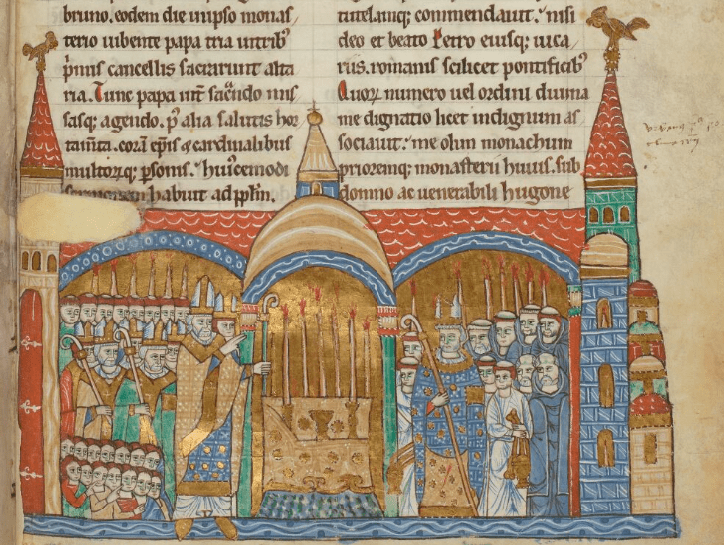 bruno. eodem die in ipso monas/
terio iubente papa tria in tribꝰ
p̄mis cancellis sacrarunt alta
ria. Tunc papa int̄ sac̄ndo mis
sasq; agendo. p̄ alia salutis hor
tam̄ta. corā ep̄is ⁊ cardinalibus
multorq; p̄sonis. huiꝰcemodi
sermonem habuit ad pp̄lm.
tutelamq; commendauit. nisi
deo et beato Petro eiusq; uica/
riis. romanis scilicet pontificibꝰ
Quoꝝ numero uel ordini diuina
me dignatio licet indignum as
sociauit. me olim monachum
prioremq; monasterii huius. sub
domno ac uenerabili hugone